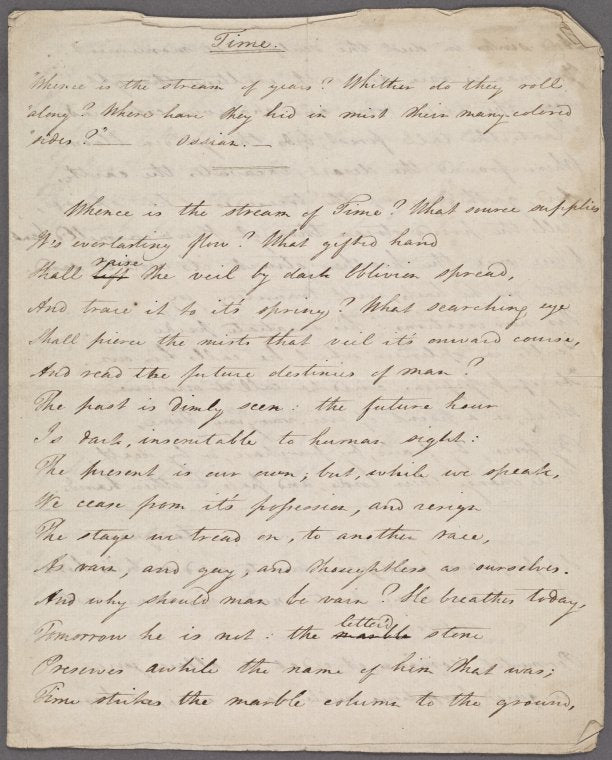 Time.
"Whence is the stream of years? Whither do they roll
"along? Where have they hid in mist their many-colored
"sides?"— Ossian.—
Whence is the stream of Time? What source supplies
It's everlasting flow? What gifted hand
Shall lift raise the veil by dark Oblivion spread,
And trace it to it's spring? What searching eye
Shall pierce the mists that veil it's onward course,
And read the future destinies of man?
The past is dimly seen: the future hour
Is dark, inscrutable to human sight:
The present is our own; but, while we speak,
We cease from it's possession, and resign
The stage we tread on, to another race,
As vain, and gay, and thoughtless as ourselves.
And why should man be vain? He breathes today,
Tomorrow he is not: the marble letter'd stone
Preserves awhile the name of him that was;
Time strikes the marble column to the ground,